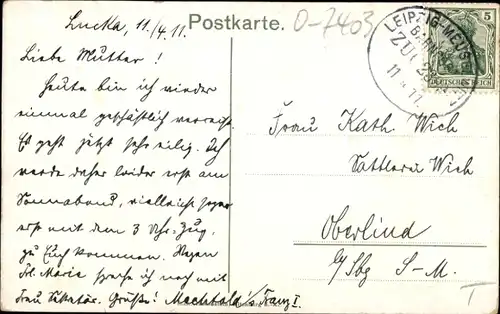 Postkarte.
0-7403
Lucka, 11./4.11.
Liebe Mutter!
Heute bin ich wieder
einmal geschäftlich verreist.
Es geht jetzt sehr eilig. Ich
werde daher leider erst am
Sonnabend, vielleicht sogar
erst mit dem 3 Uhr-Zug
zu Euch kommen. Wegen
Frl. Marie spreche ich noch mit
Frau Sekretär. Grüße!
LEIPZIG-MEUS
BAHN
ZUG
11 4 11
5
DEUTSCHES REICH
Frau Kath. Wich
Sattlerei Wich
Oberlind
b/Sbg S-M.
T